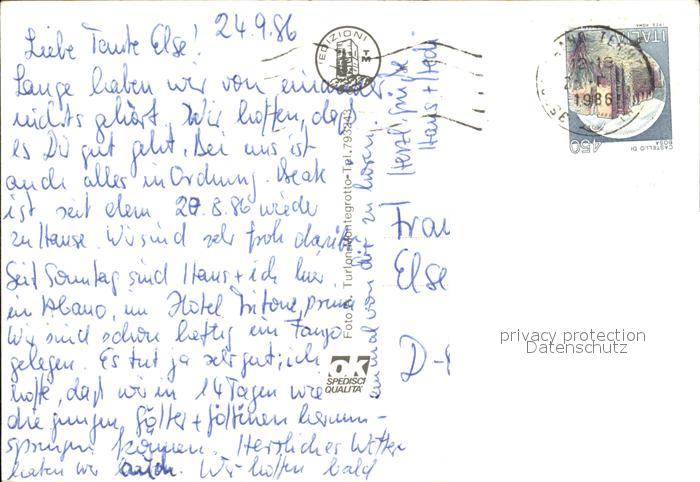 24.9.86
Liebe Tante Else!
Lange haben wir von einander
nichts gehört. Wir hoffen, daß
es Dir gut geht. Bei uns ist
auch alles in Ordnung. Beate
ist seit dem 20.8.86 wieder
zu Hause. Wir sind sehr froh darüber.
Seit Sonntag sind Hans + ich hier
in Abano, im Hotel Tritone, prima
Wir sind schon heftig im Fango
gelegen. Es tut ja sehr gut; ich
hoffe, daß wir in 14 Tagen wie
die jungen Götter + Göttinnen herum-
springen können. Herrliches Wetter
haben wir auch. Wir hoffen bald
einmal von dir zu hören.
Herzl. Grüße
Hans + Hedi
EDIZIONI
TM
Foto A. Turlon-Montegrotto-Tel.793243
OK
SPEDISCI
QUALITÀ
ITALIA
450
CASTELLO DI
ROSA
1986
Frau
Else
D-
privacy protection
Datenschutz